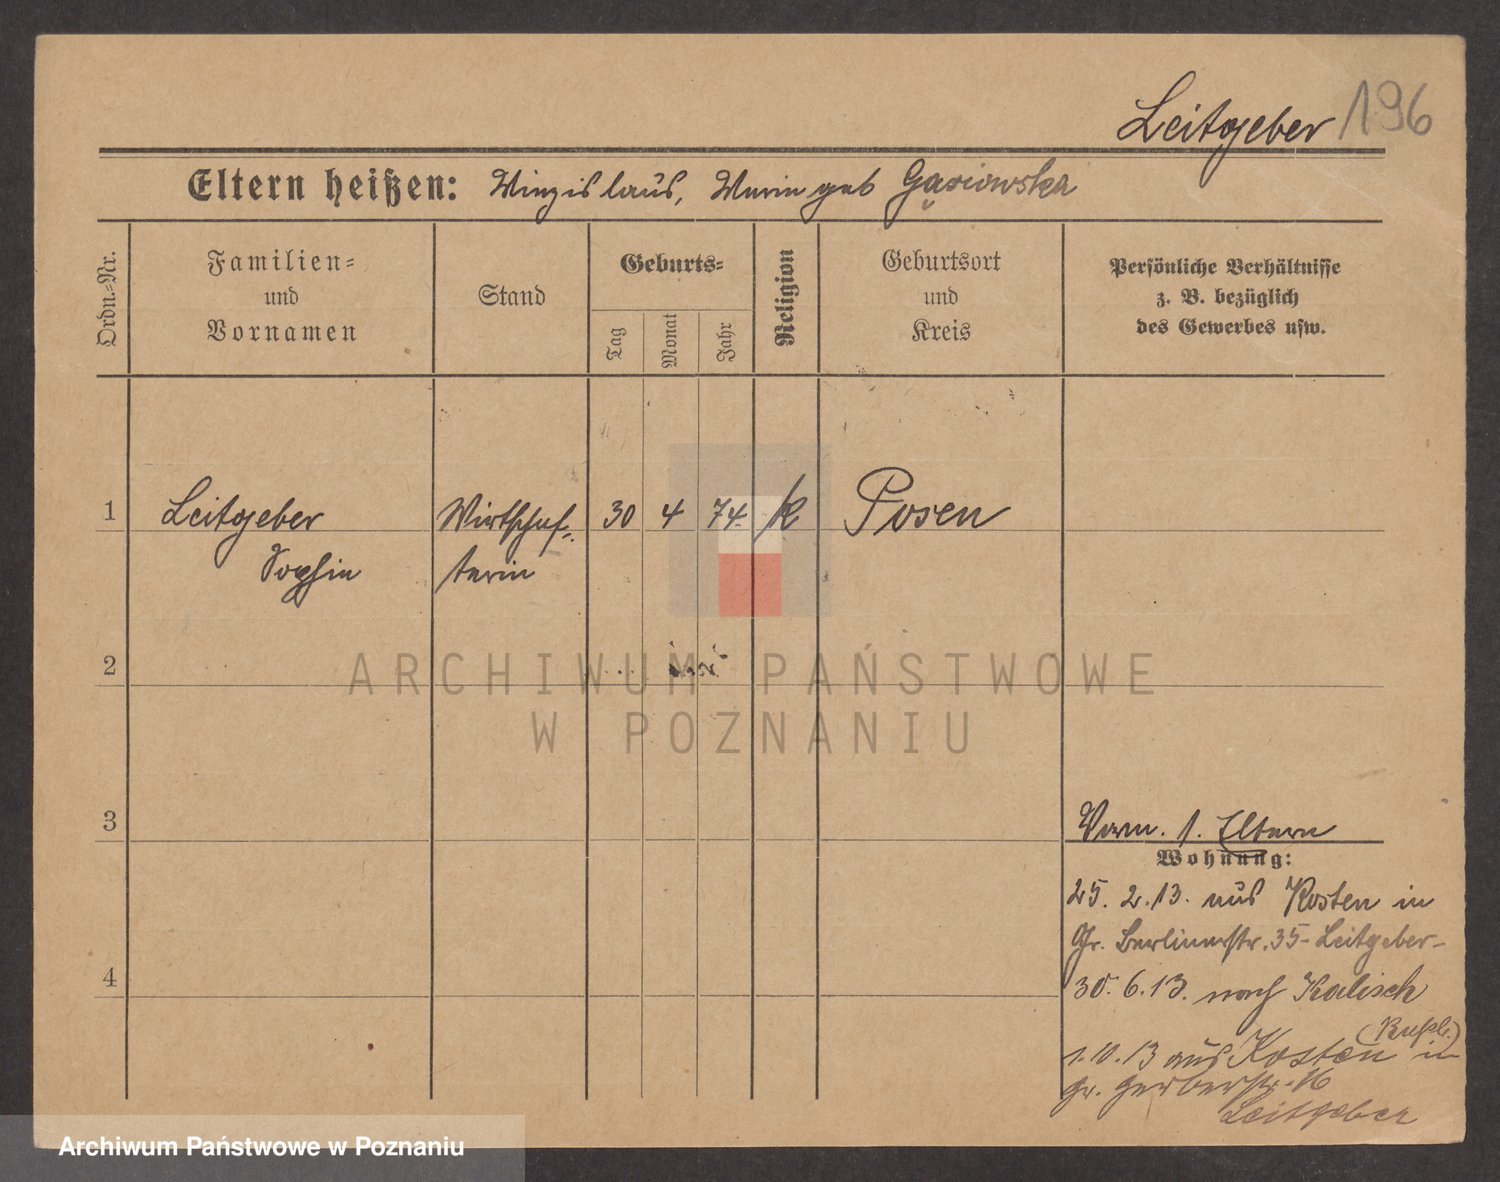 Leitgeber 196
Eltern heißen: Winzislaus, Marie geb Gąsiowska
Ordn.=Nr.
Familien=
und
Vornamen
Stand
Geburts=
Tag
Monat
Jahr
Religion
Geburtsort
und
Kreis
Persönliche Verhältnisse
z. B. bezüglich
des Gewerbes usw.
1 Leitgeber Wirtschaf= 30 4 74. k Posen
Sophie terin
2
3
4
Verm. 1. Eltern
Wohnung:
25. 2. 13. aus Kosten in
Gr. Berlinerstr. 35 - Leitgeber -
30. 6. 13. nach Kalisch
(Rußl.)
1. 10. 13 aus Kosten in
Gr. Gerberstr. 16
Leitgeber
ARCHIWUM PAŃSTWOWE
W POZNANIU
Archiwum Państwowe w Poznaniu